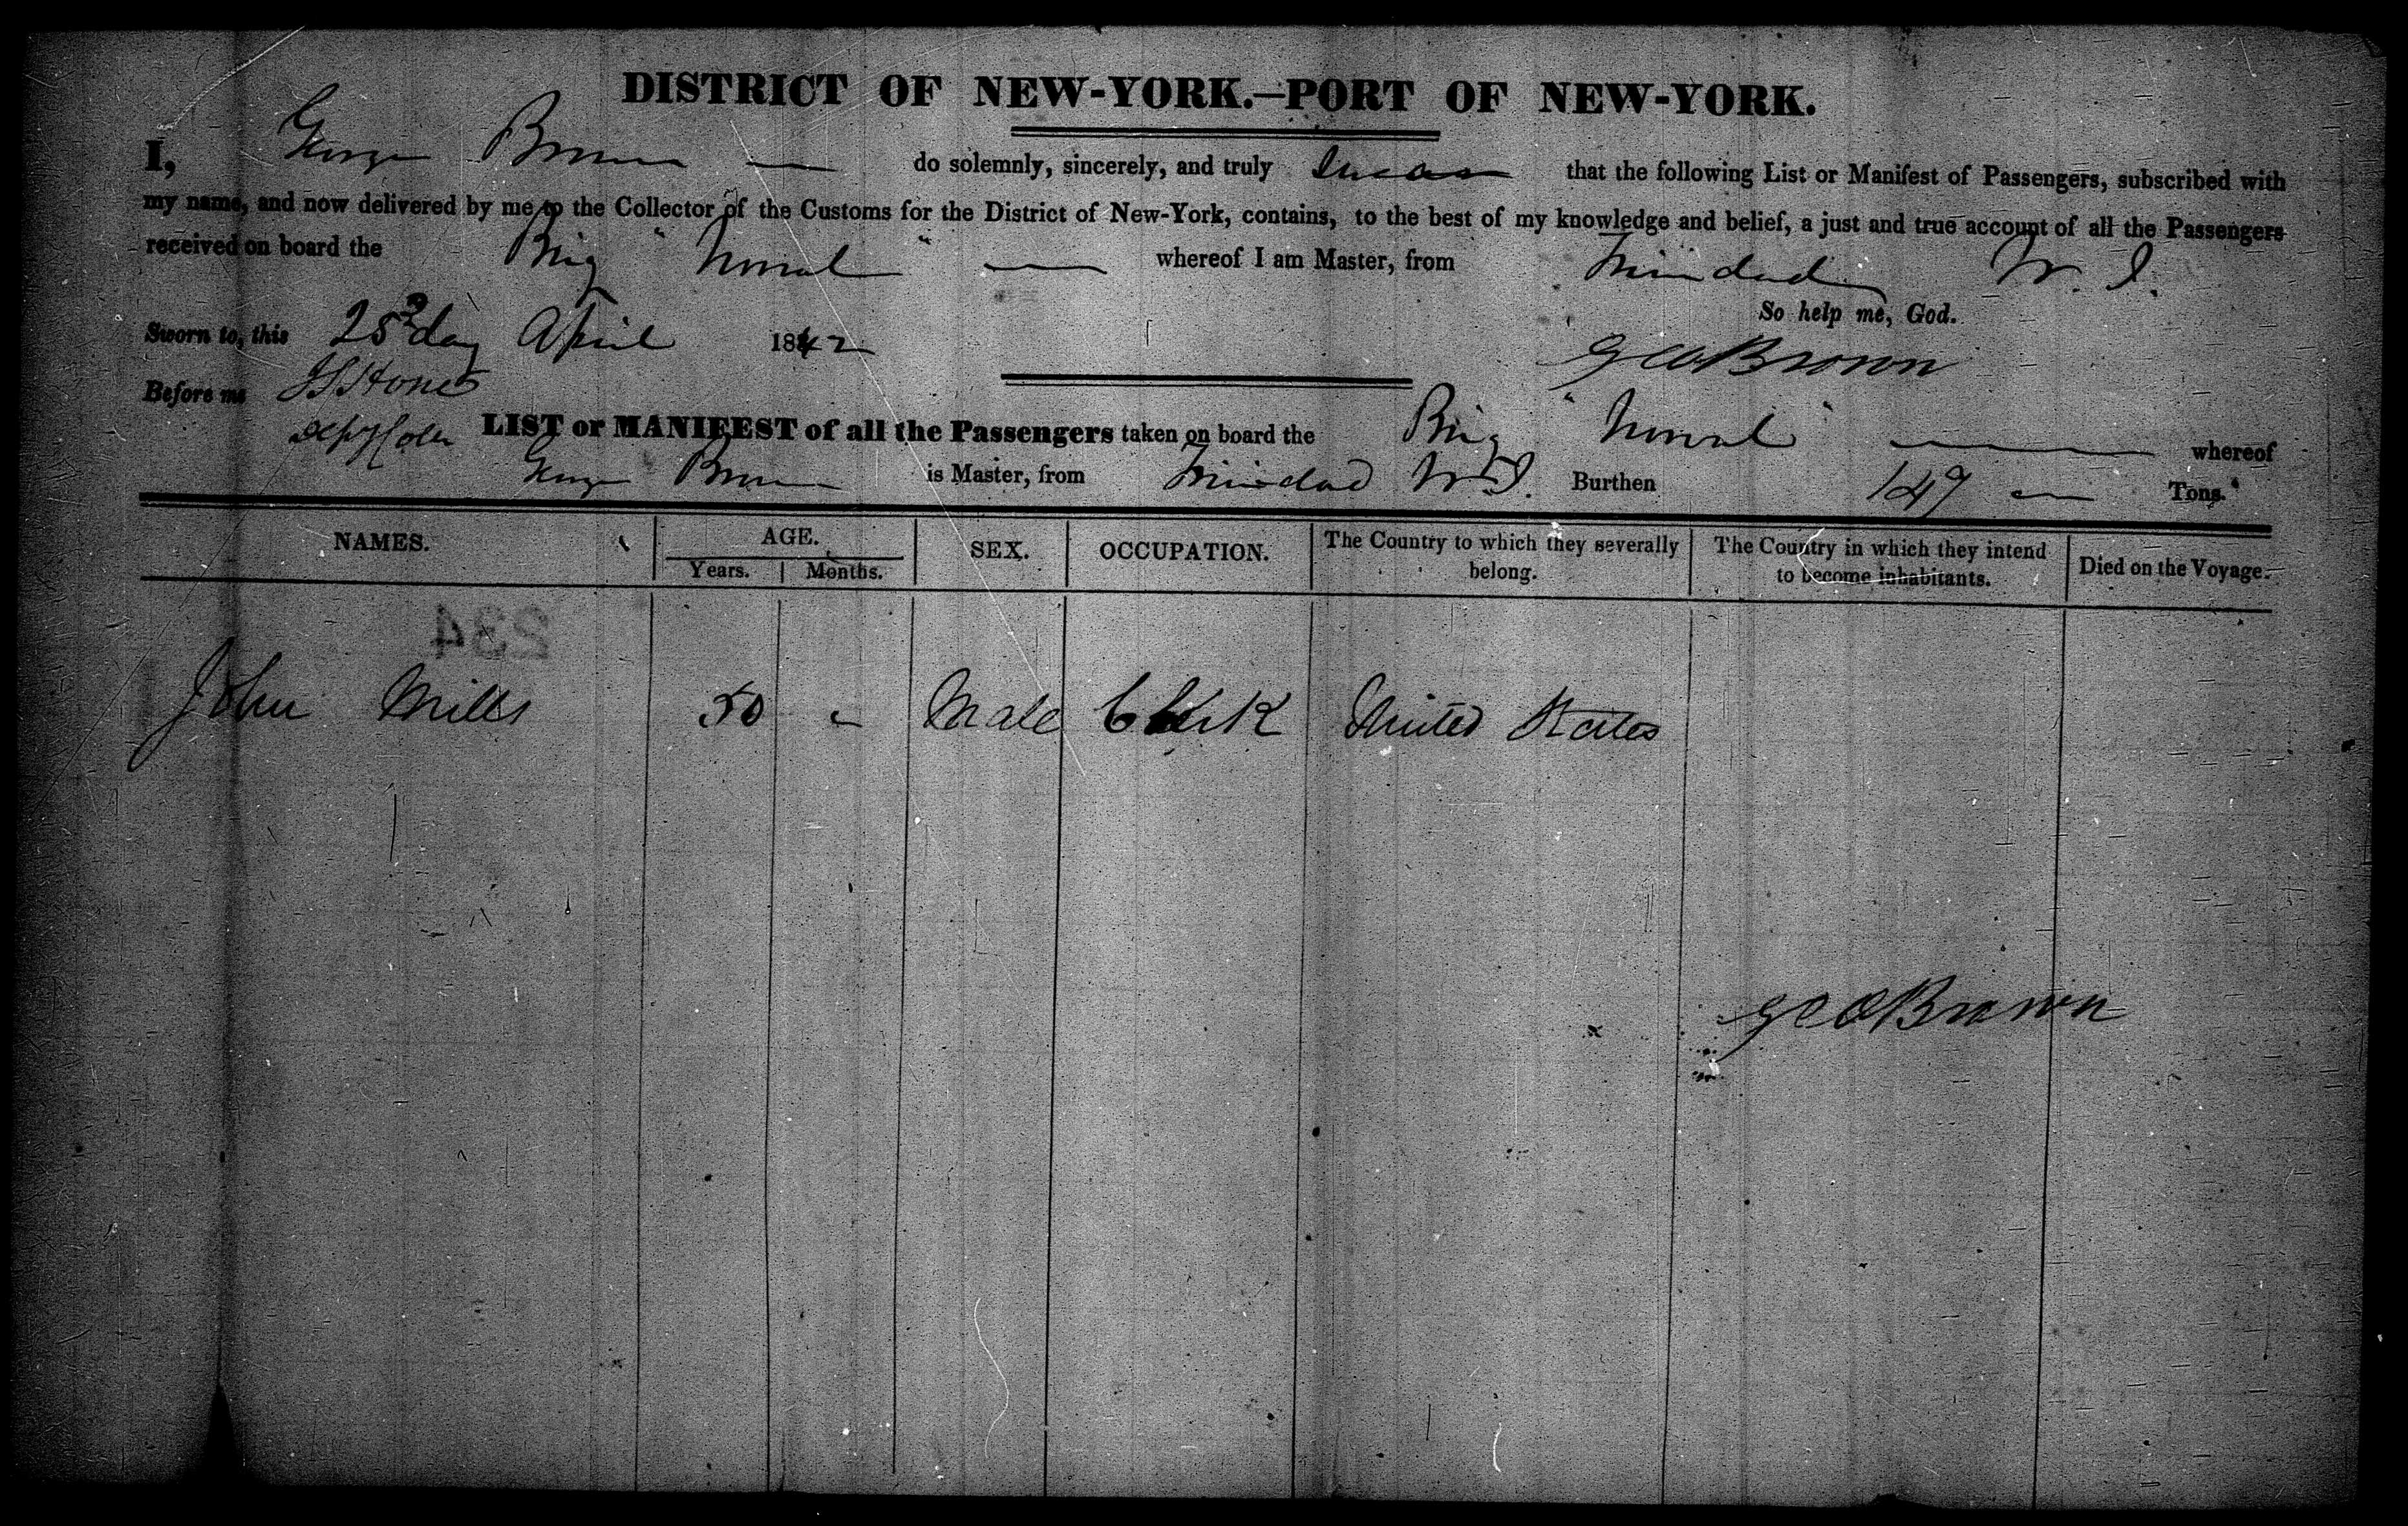 DISTRICT OF NEW-YORK.—PORT OF NEW-YORK.
I, George Brown — do solemnly, sincerely, and truly swear that the following List or Manifest of Passengers, subscribed with
my name, and now delivered by me to the Collector of the Customs for the District of New-York, contains, to the best of my knowledge and belief, a just and true account of all the Passengers
received on board the Brig "Norval" — whereof I am Master, from Trinidad W. I.
So help me, God.
Sworn to, this 25 day April 1842
Geo Brown
Before me
LIST or MANIFEST of all the Passengers taken on board the Brig "Norval" — whereof
George Brown is Master, from Trinidad W. I. Burthen 149 — Tons.
NAMES. AGE. SEX. OCCUPATION. The Country to which they severally belong. The Country in which they intend to become inhabitants. Died on the Voyage.
Years. Months.
234
John Mills 50 - Male Clerk United States
Geo Brown